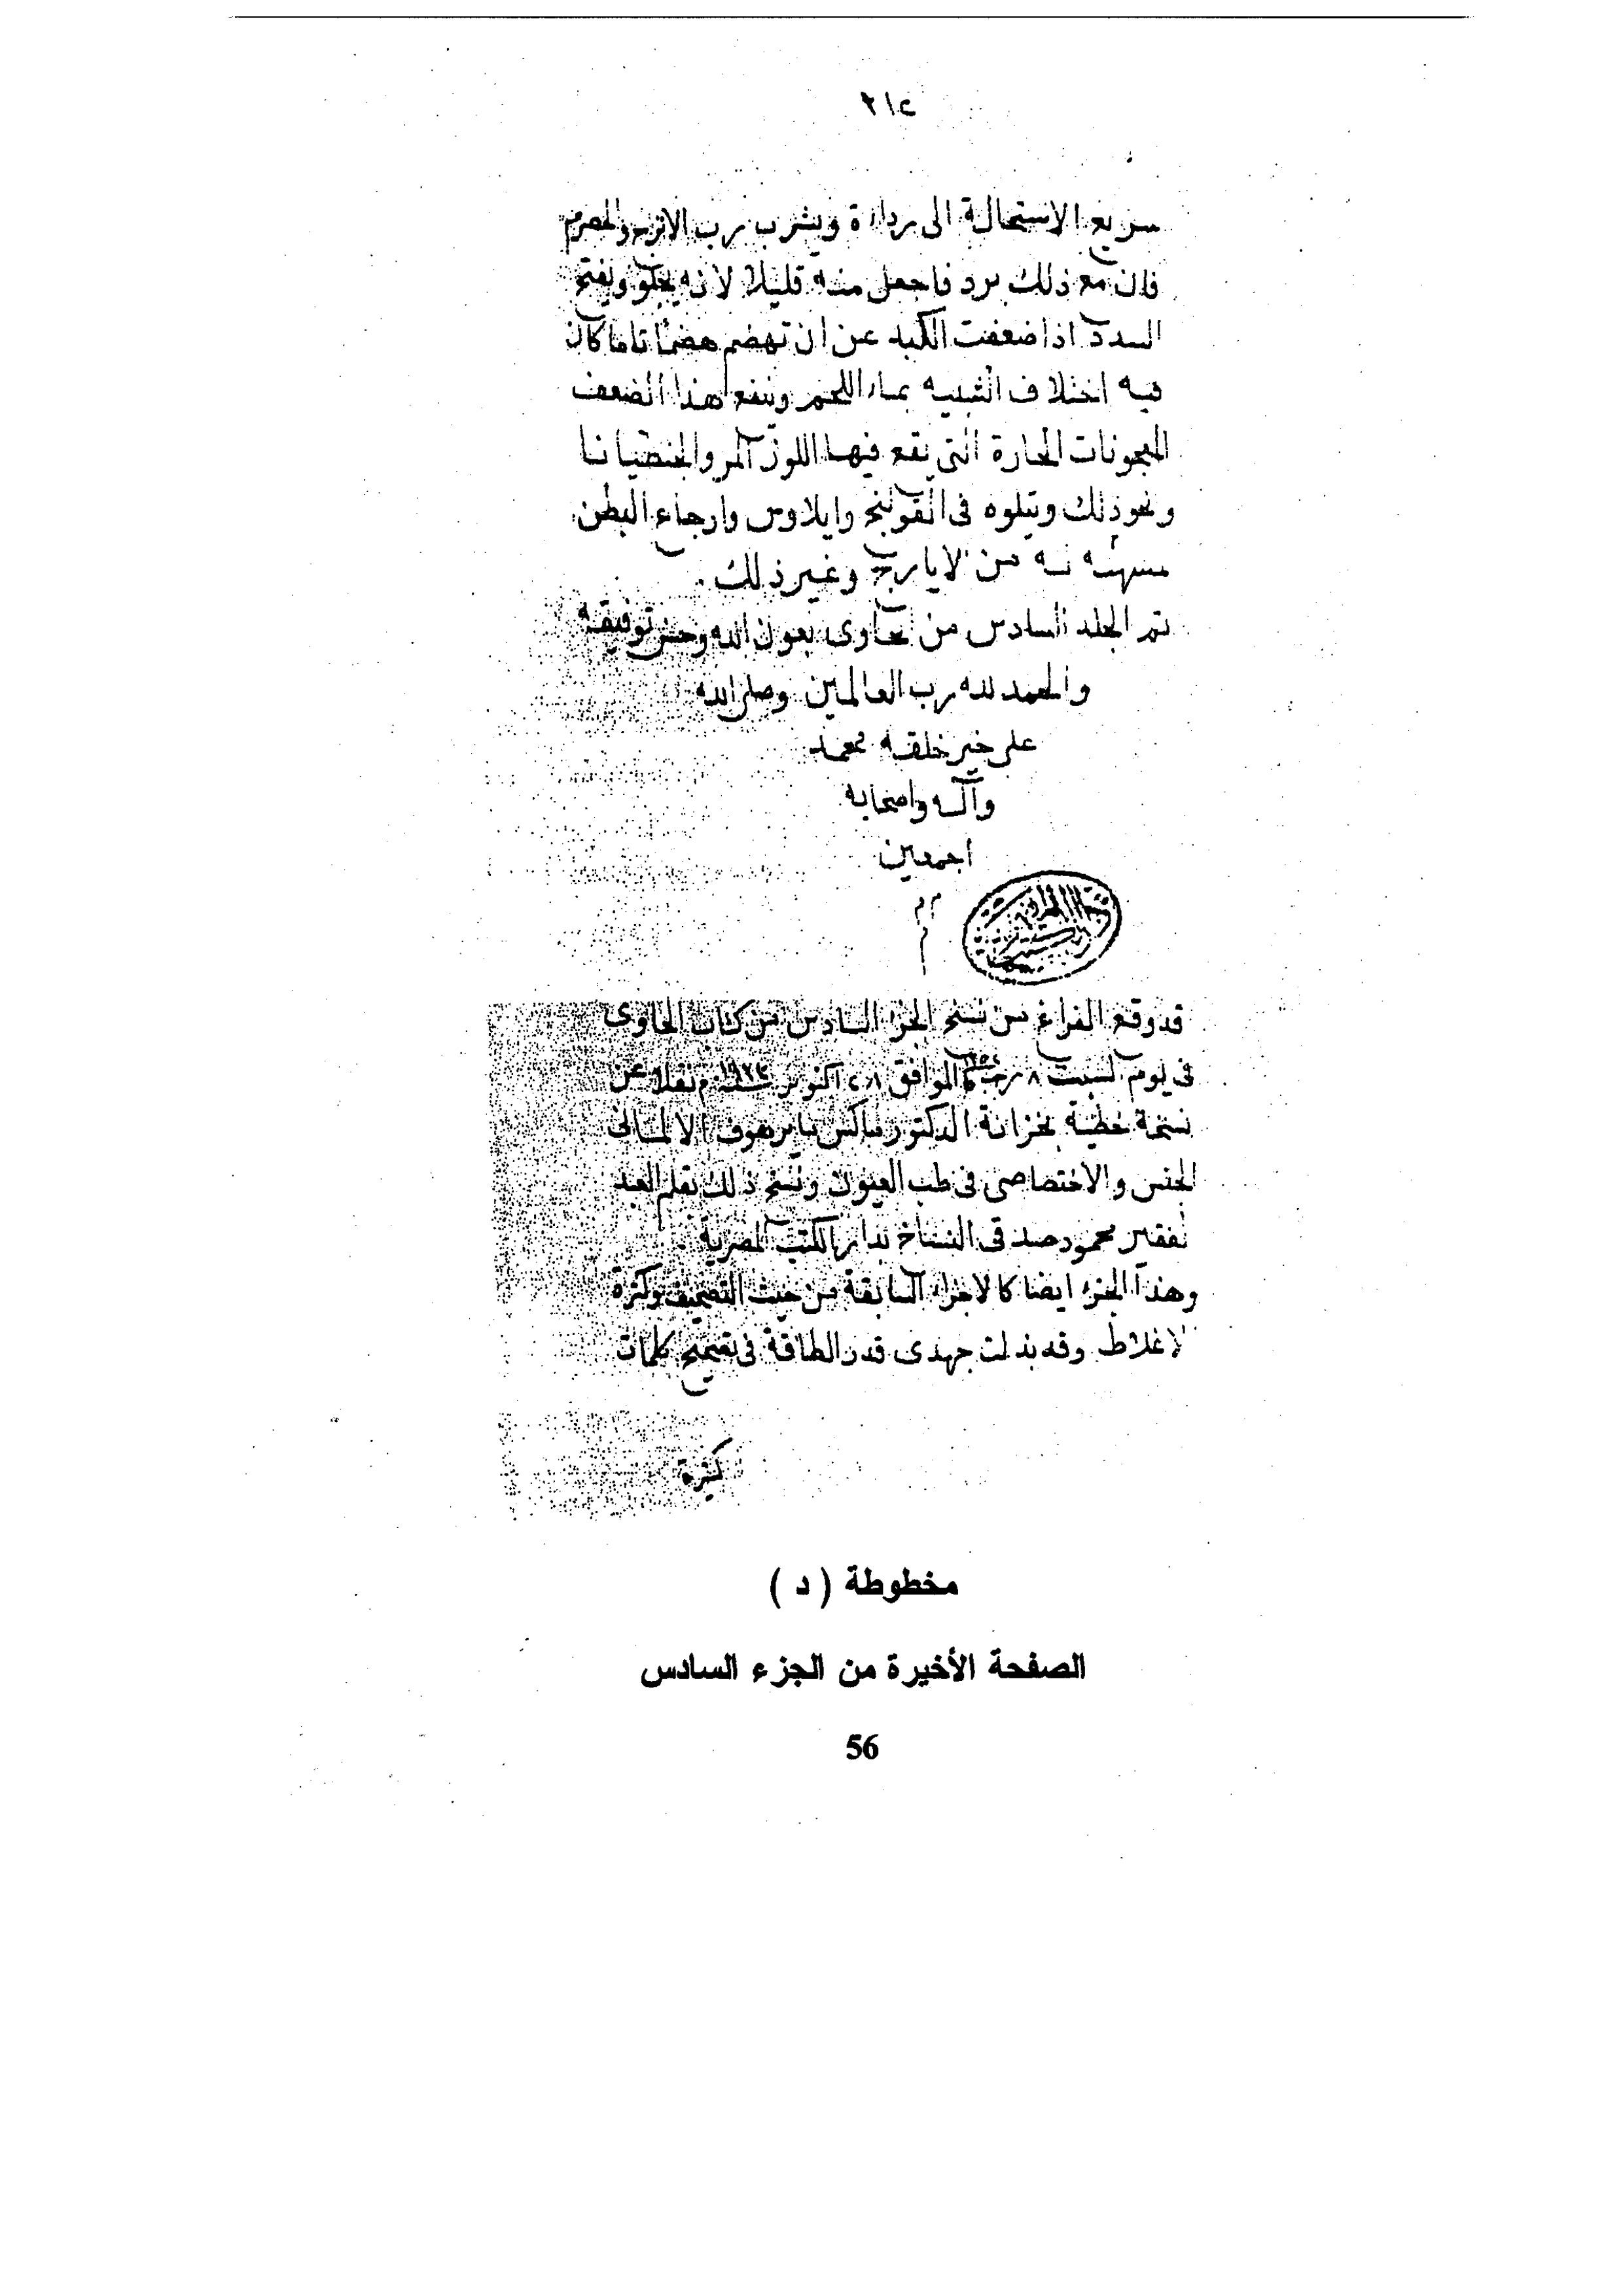 ٢١٢
سريع الاستحالة الى رداءة ويشرب رب الاترج والحصرم
فان مع ذلك برد فاجعل منه قليلا لانه يجلو ويفتح
السدد اذا ضعفت الكبد عن ان تهضم هضما تاما كان
فيه اختلاف الشبيه بماء اللحم وينفع هذا الضعف
المعجونات الحارة التى يقع فيها اللوز المر والجنطيانا
ونحو ذلك ويتلوه فى القولنج وايلاوس واوجاع البطن
مسهلة من الايارج وغير ذلك .
تم الجلد السادس من الحاوى بعون الله وحسن توفيقه
والحمد لله رب العالمين وصلى الله
على خير خلقه محمد
وآله واصحابه
اجمعين
قد وقع الفراغ من نسخ الجزء السادس من كتاب الحاوى
فى يوم السبت ٨ رجب الموافق ٢٨ اكتوبر سنة م نقلا عن
نسخة خطية بخزانة الدكتور ماكس مايرهوف الالمانى
الجنس والاختصاصى فى طب العيون ونسخ ذلك بقلم العبد
الفقير محمود صدقى النساخ بدار الكتب المصرية .
وهذا الجزء ايضا كالاجزاء السابقة من حيث التصحيف وكثرة
الاغلاط وقد بذلت جهدى قدر الطاقة فى تصحيح كلمات
كثيرة
مخطوطة ( د )
الصفحة الأخيرة من الجزء السادس
56